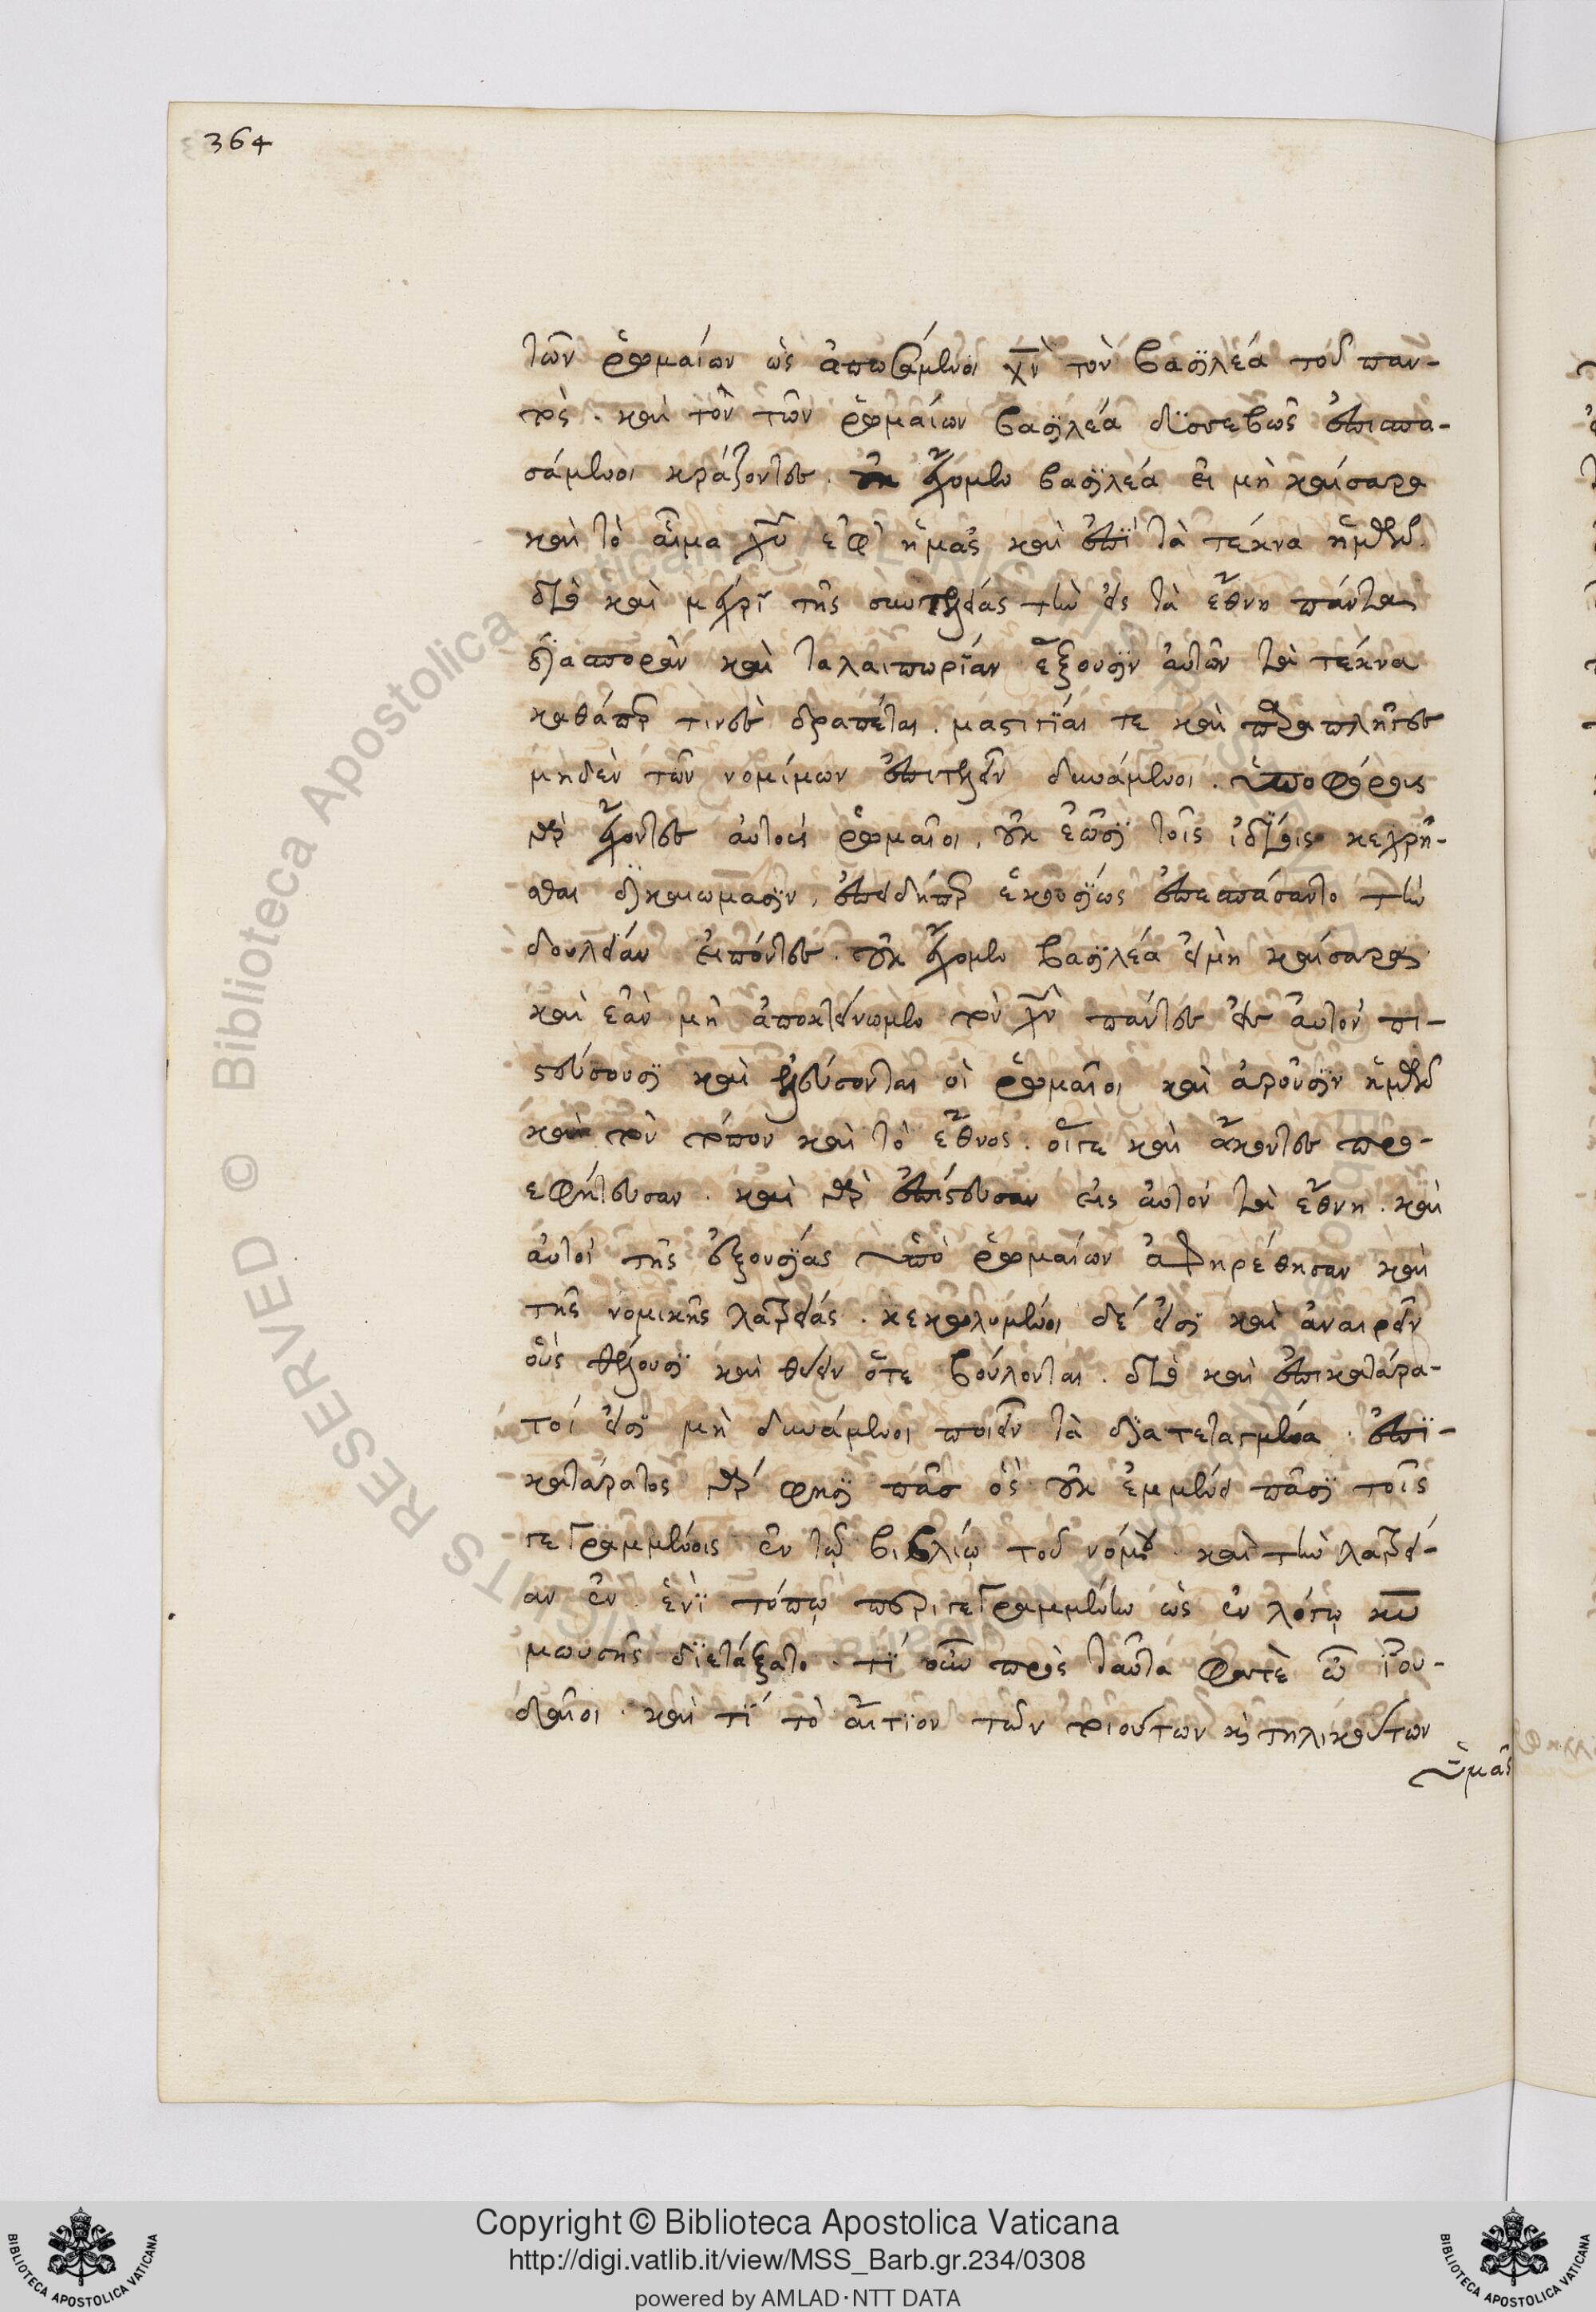 364
τῶν ῥωμαίων ὡς ἀπωσάμενοι χν̅ τὸν βασϊλέα τοῦ παν-
τὸς. καὶ τὸν τῶν ῥωμαίων βασϊλέα δϋσσεβῶς ἐπισπα-
σάμενοι κράζοντες. οὐκ ἔχομεν βασϊλέα εἰ μὴ καίσαρα
καὶ τὸ αἷμα χυ̅ ἐφ' ἡμᾶς καὶ ἐπῒ τὰ τέκνα ἡμῶν.
διὸ καὶ μέχρϊ τῆς συντελείας τὴν εἰς τὰ ἔθνη πάντα
δϊασπορὰν καὶ ταλαιπωρΐαν ἕξουσϊν αὐτῶν τὰ τέκνα
καθάπερ τινὲς δραπέται. μαστιγΐαι τε καὶ παραπλῆγες
μηδὲν τῶν νομίμων ἐπιτελεῖν δυνάμενοι. ὑποφόρους
γὰρ ἔχοντες αὐτοὺς ῥωμαῖοι, οὐκ ἐῶσϊ τοῖς ἰδίοις κεχρῆ-
σθαι δϊκαιώμασϊν, ἐπειδήπερ ἑκουσϊως ἐπεσπάσαντο τὴν
δουλείαν εἰπόντες. οὐκ ἔχομεν βασϊλέα εἰμὴ καίσαρα
καὶ ἐὰν μὴ ἀποκτείνωμεν τὸν χν̅ πάντες εἰς αὐτὸν πι-
στεύσουσϊ καὶ ἐλεύσονται οἱ ῥωμαῖοι καὶ ἀροῦσϊν ἡμῶν
καὶ τὸν τόπον καὶ τὸ ἔθνος. οἵτε καὶ ἄκοντες προ-
εφήτευσαν. καὶ γὰρ ἐπίστευσαν εἰς αὐτὸν τὰ ἔθνη. καὶ
αὐτοὶ τῆς ἐξουσϊας ὑπὸ ῥωμαίων ἀφηρέθησαν καὶ
τῆς νομικῆς λατρείας. κεκωλυμένοι δέ εἰσϊ καὶ ἀναιρεῖν
οὓς θέλουσϊ καὶ θύειν ὅτε βούλονται. διὸ καὶ ἐπικατάρα-
τοί εἰσϊ μὴ δυνάμενοι ποιεῖν τὰ δϊατεταγμένα. ἐπϊ-
κατάρατος γάρ φησϊ πᾶς ὃς οὐκ ἐμμένει πᾶσϊ τοῖς
γεγραμμένοις ἐν τῷ βιβλίῳ τοῦ νόμου. καὶ τὴν λατρεί-
αν ἐν ἑνῒ τόπῳ περιγεγραμμένην ὡς ἐν λόγῳ κυ̅
μωυσῆς δϊετάξατο. τϊ οὖν πρὸς ταῦτα φατὲ ὦ ϊου-
δαῖοι. καὶ τϊ τὸ αἴτϊον τῶν τοιούτων κ τηλικούτων
ὑμᾶς
Copyright © Biblioteca Apostolica Vaticana
http://digi.vatlib.it/view/MSS_Barb.gr.234/0308
powered by AMLAD·NTT DATA